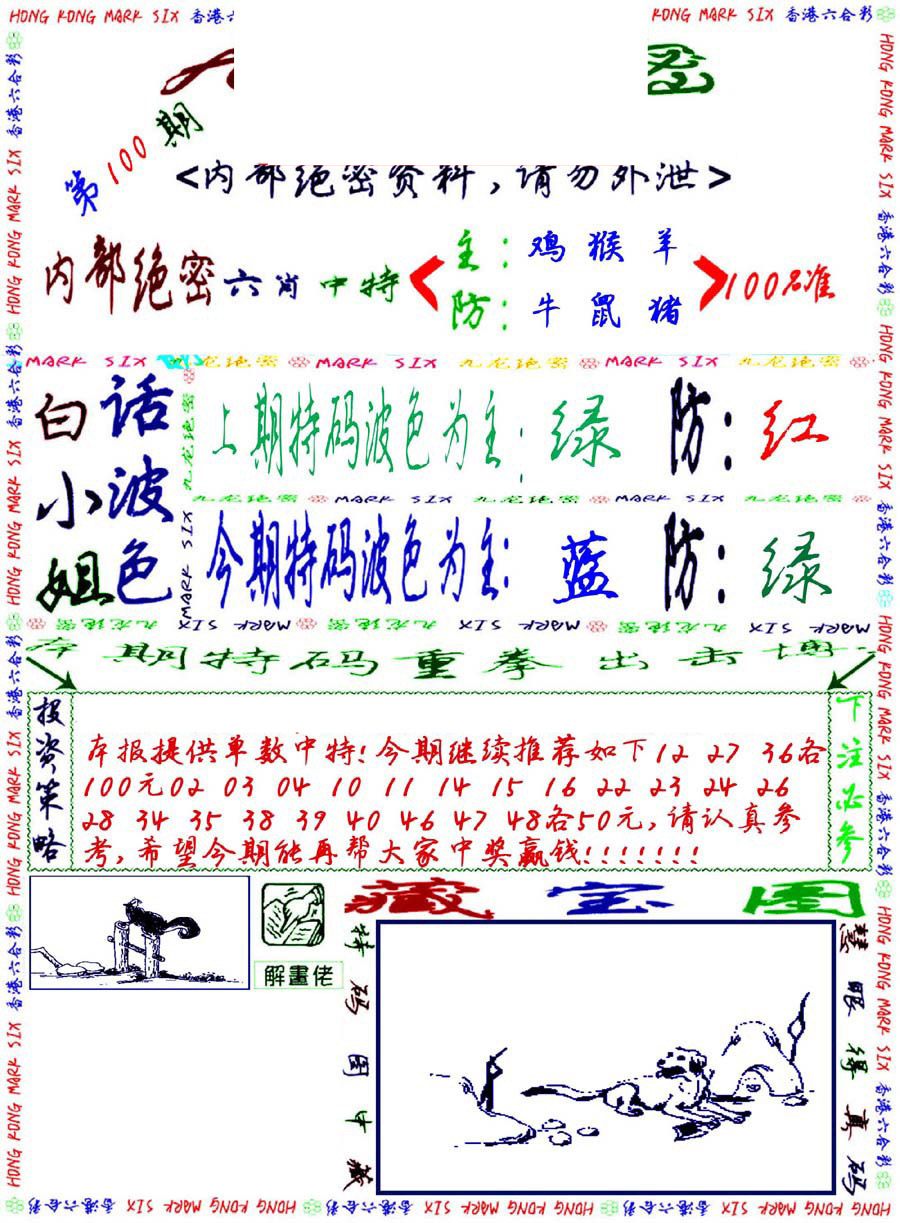 HONG KONG MARK SIX 香港六合彩
KONG MARK SIX 香港六合彩
第100期
<内部绝密资料，请勿外泄>
内部绝密六肖中特
主：鸡 猴 羊
防：牛 鼠 猪
100%准
MARK SIX 九龙绝密 MARK SIX 九龙绝密 MARK SIX 九龙绝密
白话
小波
姐色
上期特码波色为主：绿 防：红
九龙绝密 MARK SIX 九龙绝密 MARK SIX 九龙绝密
今期特码波色为主：蓝 防：绿
九龙绝密 MARK SIX 九龙绝密 MARK SIX 九龙绝密 MARK SIX
期特码重拳出击
投资策略
本报提供单数中特！今期继续推荐如下12 27 36各
100元02 03 04 10 11 14 15 16 22 23 24 26
28 34 35 38 39 40 46 47 48各50元，请认真参
考，希望今期能再帮大家中奖赢钱！！！！！！！
下注必参
解畫佬
藏宝图
特码图中藏
慧眼得真码
HONG KONG MARK SIX 香港六合彩